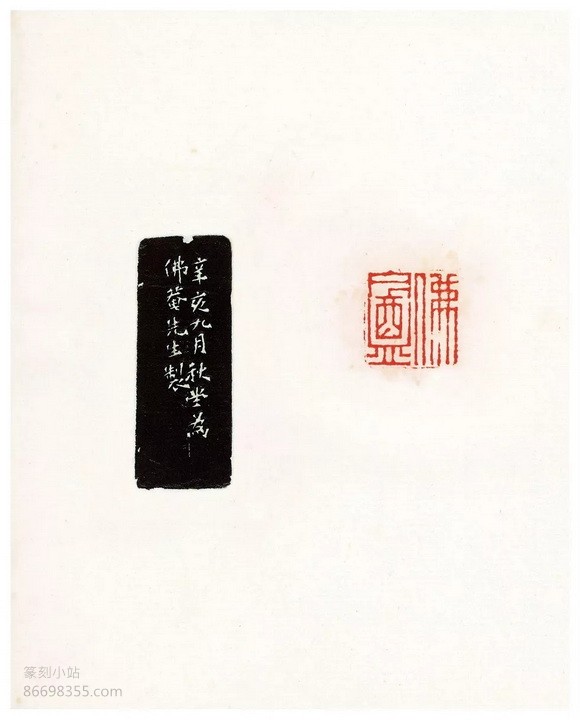 佛盦
辛亥九月秋堂為
佛菴先生製
篆刻小站
86698355.com